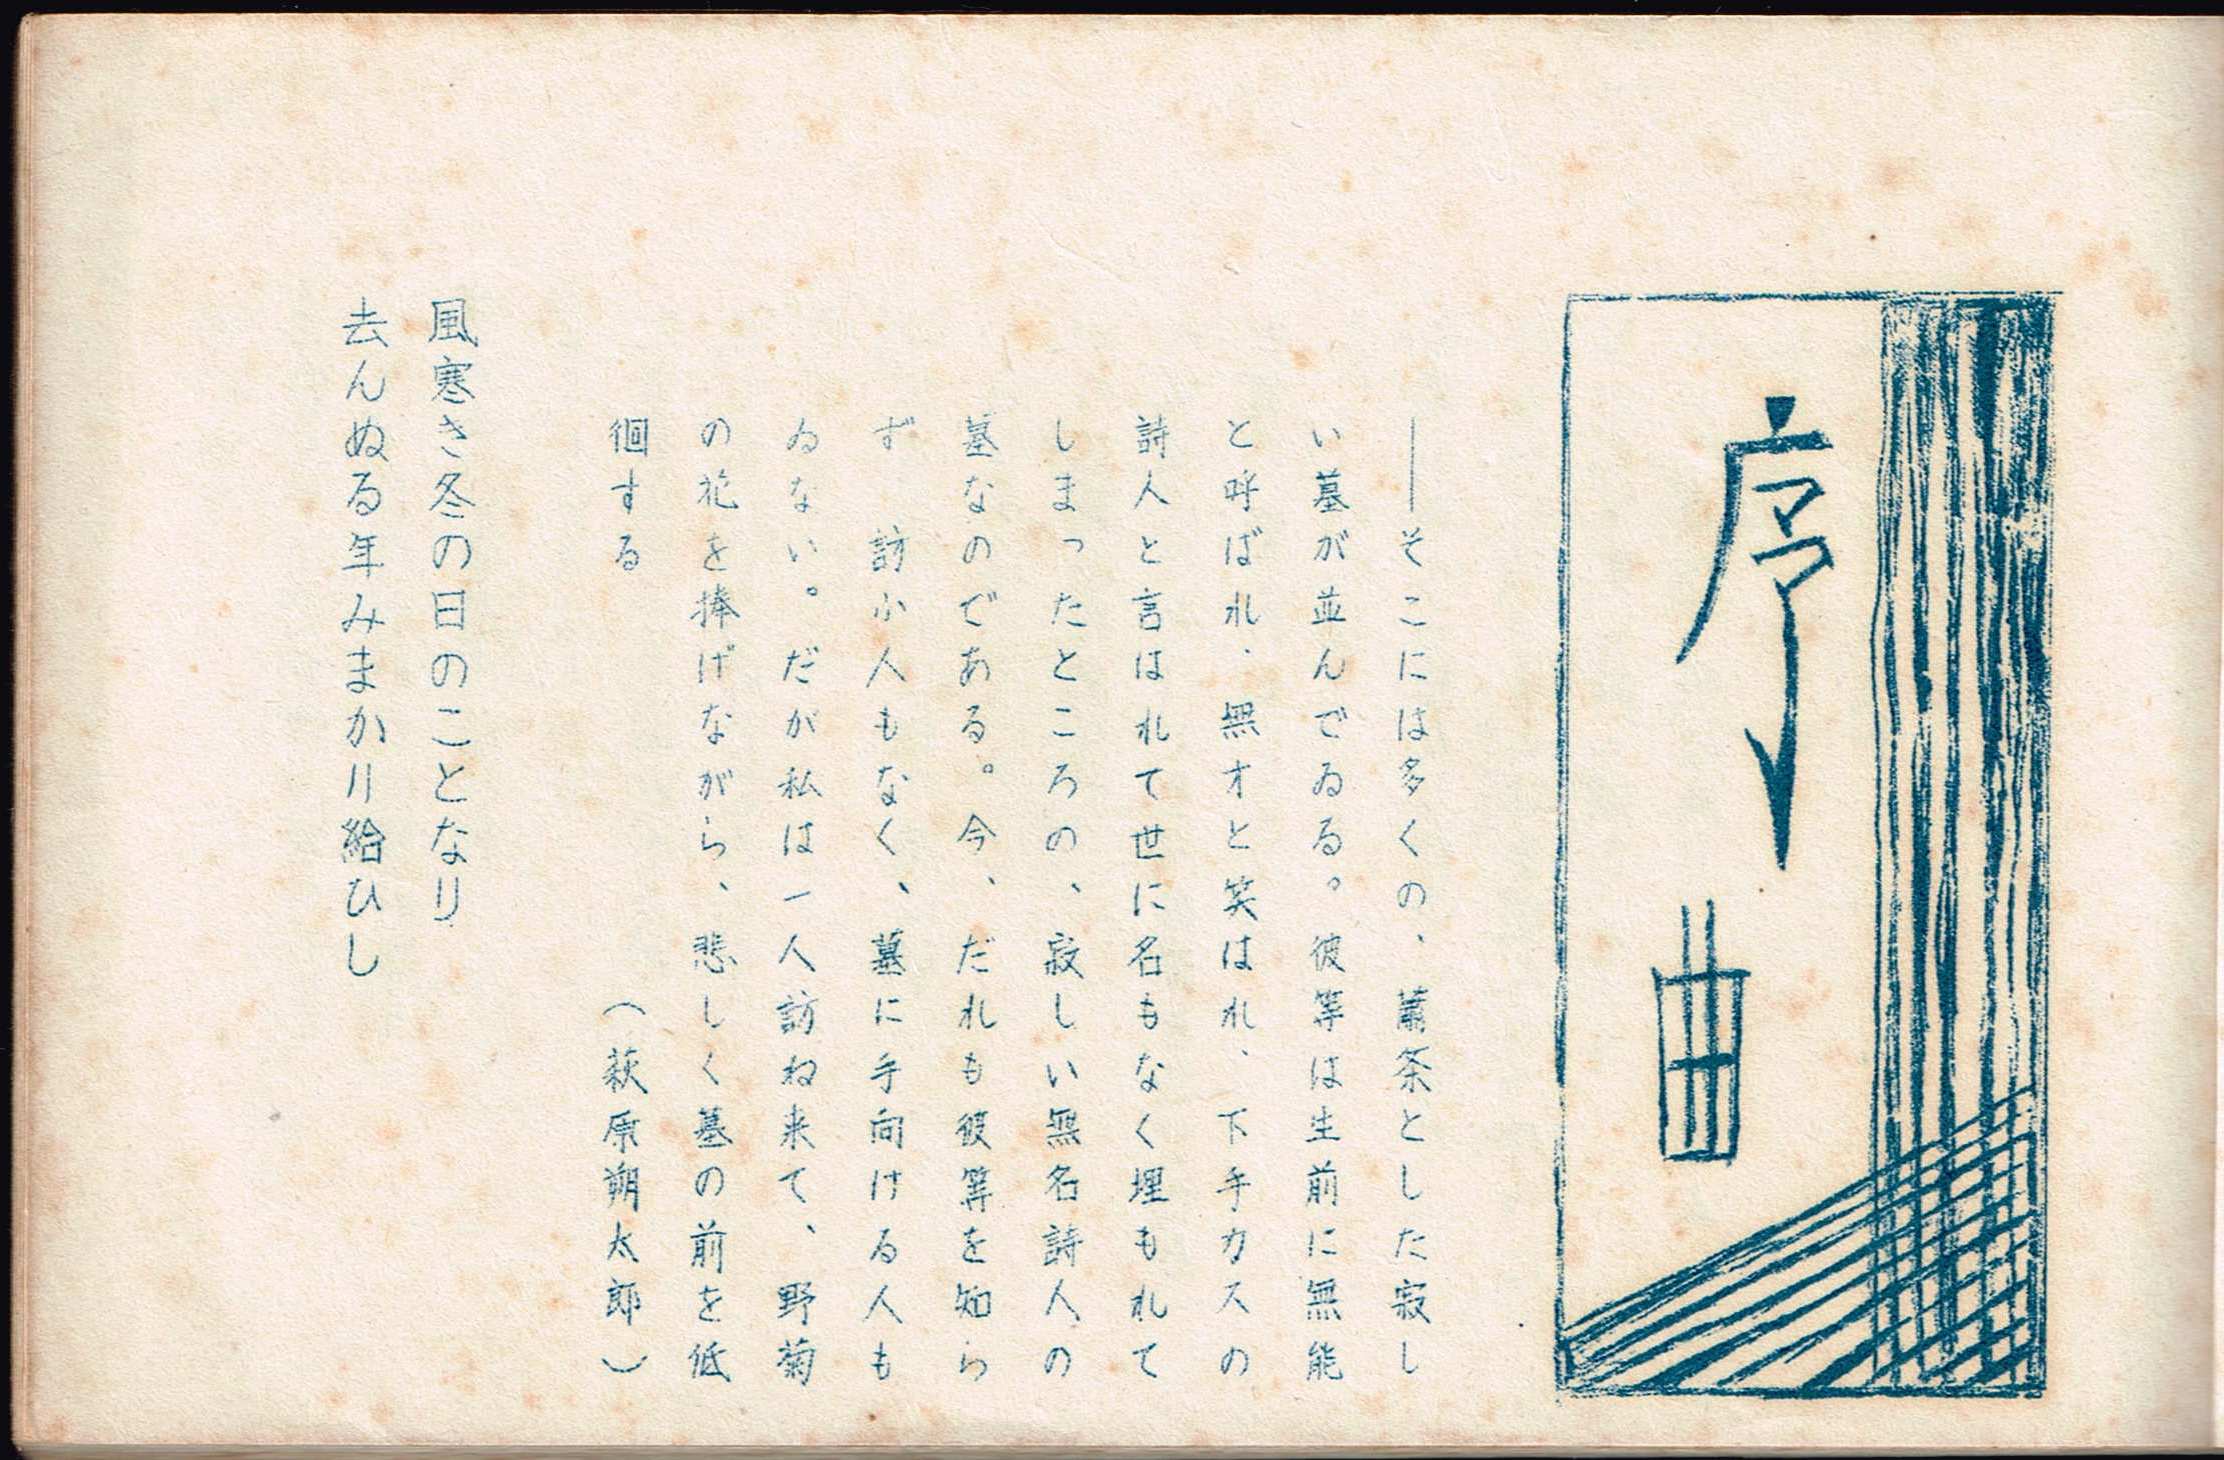 序曲
――そこには多くの、蕭条とした寂し
い墓が並んでゐる。彼等は生前に無能
と呼ばれ、無才と笑はれ、下手カスの
詩人と言はれて世に名もなく埋もれて
しまったところの、寂しい無名詩人の
墓なのである。今、だれも彼等を知ら
ず、訪ふ人もなく、墓に手向ける人も
ゐない。だが私は一人訪ね来て、野菊
の花を捧げながら、悲しく墓の前を低
徊する
（萩原朔太郎）
風寒き冬の日のことなり
去んぬる年みまかり給ひし